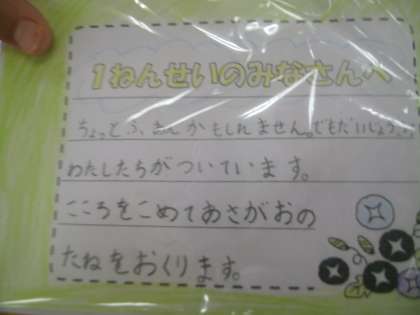 1ねんせいのみなさんへ
ちょっとふあんかもしれません。でもだいじょうぶ
わたしたちがついています。
こころをこめてあさがおの
たねをおくります。